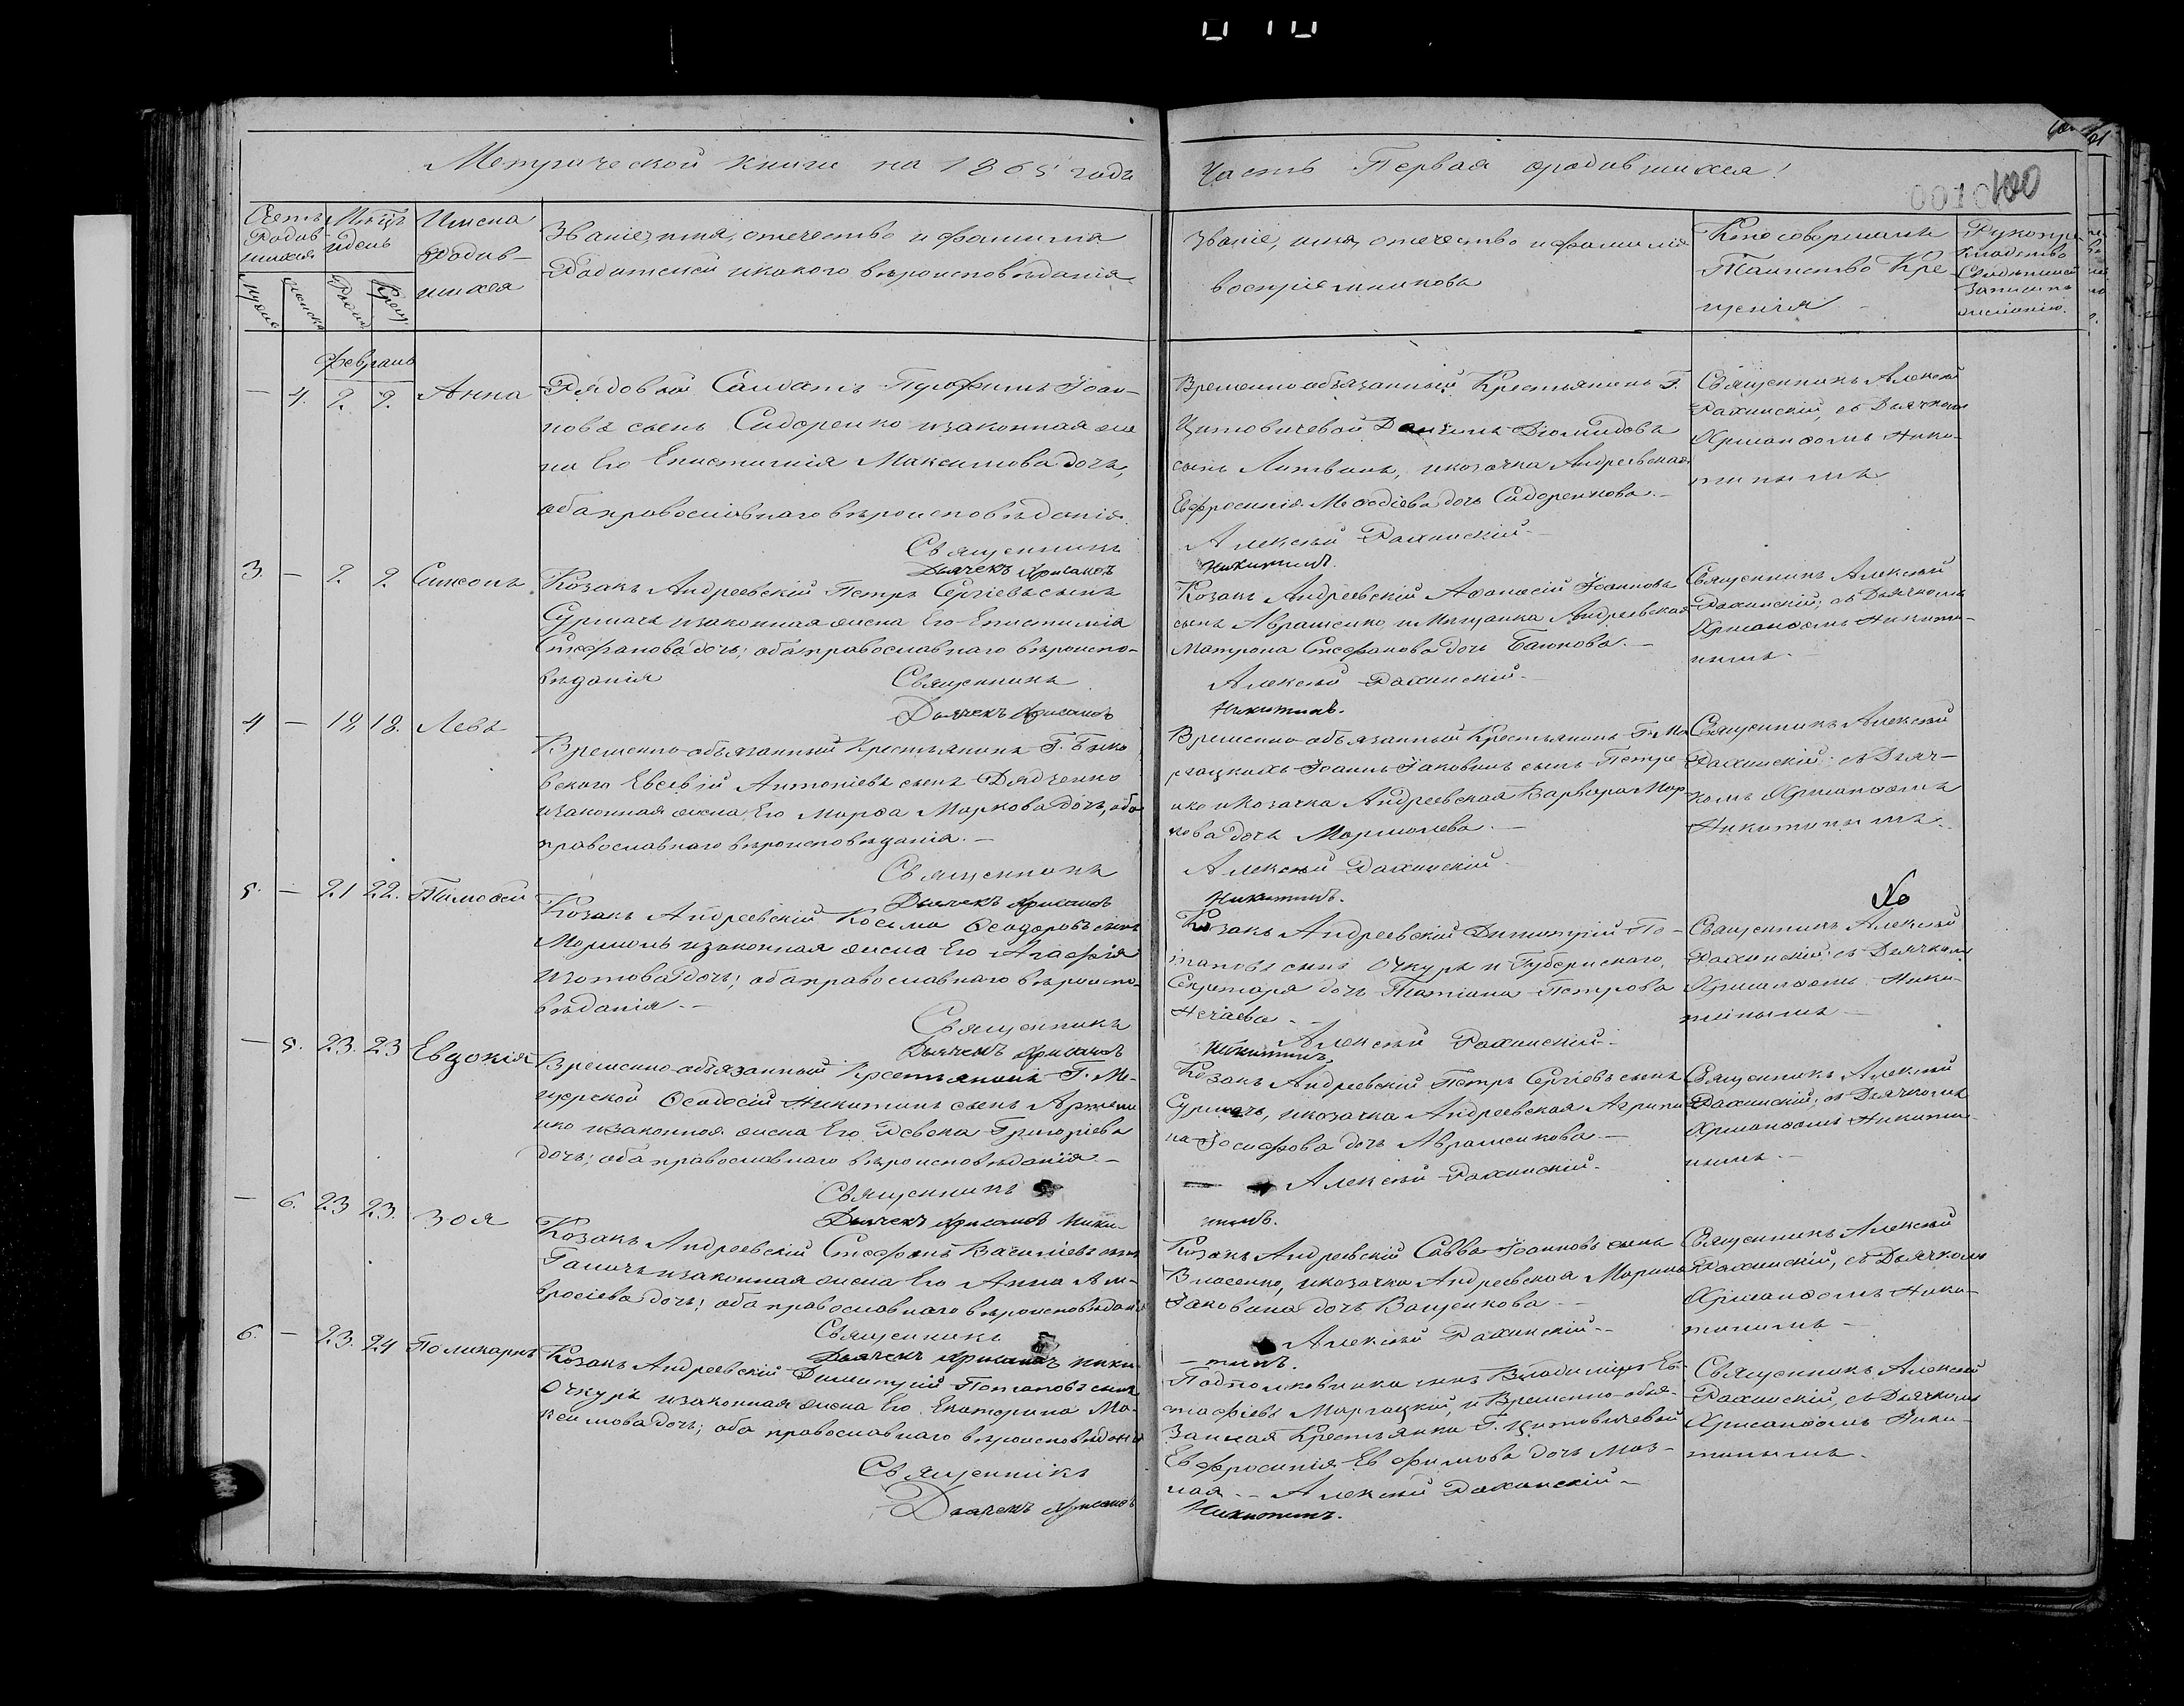 Метрической книги на 1865 годъ
Часть Первая о родившихся!
0010
100
Счетъ Родив-шихся
Мѣсяцъ и день
Имена родив-шихся
Званіе, имя, отечество и фамилія
Родителей и какого вѣроисповѣданія
Званіе, имя, отечество и фамилія
воспріемниковъ
Кто совершалъ
Таинство Кре-
щенія
Февраль
— 4. 2. 2. Анна
Рядовой Салдатъ Трофимъ Іоан-
новъ сынъ Сидоренко и законная же
на Его Епистимія Максимова дочь,
оба православнаго вѣроисповѣданія.
Священникъ
Дьячекъ Хрисанѳъ
Временно-обязанный Крестьянинъ Г.
Цитовичевой Даніилъ Діомидовъ
сынъ Литвинъ, и козачка Андреевская
Евфросинія Меѳодіева дочь Сидоренкова.—
Алексѣй Рахинскій—
Никитинъ.
Священникъ Алексѣй
Рахинскій, съ Дьячкомъ
Хрисанѳомъ Ники-
тинымъ
3. — 2. 2 Симеонъ
Козакъ Андреевскій Петръ Сергіевъ сынъ
Сурмачъ и законная жена Его Епистимія
Стефанова дочь; оба православнаго вѣроиспо-
вѣданія
Священникъ
Дьячекъ Хрисанѳъ
Козакъ Андреевскій Аѳанасій Іоанновъ
сынъ Авраменко, и Мѣщанка Андреевская
Матрона Стефанова дочь Баюнова.—
Алексѣй Рахинскій—
Никитинъ.
Священникъ Алексѣй
Рахинскій; съ Дьячкомъ
Хрисанѳомъ Никити-
нымъ.—
4 — 18. 18. Левъ
Временно-обязанный Крестьянинъ Г.
Евсевій Антоніевъ сынъ Дядченко
и законная жена Его Марѳа Маркова дочь, оба
православнаго вѣроисповѣданія.—
Священникъ
Дьячекъ Хрисанѳъ
Временно-обязанный Крестьянинъ Г. Ма
рзацкихъ Іоаннъ Іаковинъ сынъ Петре
нко и Козачка Андреевская Варвара Мар-
кова дочь Мармолева.—
Алексѣй Рахинскій
Никитинъ.
Священникъ Алексѣй
Рахинскій съ Дьяч-
комъ Хрисанѳомъ
Никитинымъ.
5. — 21 22. Тимоѳей
Козакъ Андреевскій Косьма Ѳеодоровъ сынъ
Мармоль и законная жена Его Агафія
Изотова дочь; оба православнаго вѣроиспо-
вѣданія.—
Священникъ
Дьячекъ Хрисанѳъ
Козакъ Андреевскій Димитрій По-
таповъ сынъ Очкуръ и Губернскаго
Секретаря дочь Татіана Петрова
Нечаева.—
Алексѣй Рахинскій—
Никитинъ.
Священникъ Алексѣй
Рахинскій; съ Дьячкомъ
Хрисанѳомъ Ники-
тинымъ—
— 5. 23. 23 Евдокія
Временно-обязанный Крестьянинъ Г. Ме-
щерской Ѳеодосій Никитинъ сынъ Артеме
нко и законная жена Его Ревека Григоріева
дочь; оба православнаго вѣроисповѣданія.—
Священникъ
Дьячекъ Хрисанѳъ Ники-
Козакъ Андреевскій Петръ Сергіевъ сынъ
Сурмачъ, и козачка Андреевская Агрипи
на Іосифова дочь Авраменкова.—
Алексѣй Рахинскій.
тинъ.
Священникъ Алексѣй
Рахинскій; съ Дьячкомъ
Хрисанѳомъ Никити-
нымъ.—
— 6. 23 23. Зоя
Козакъ Андреевскій Стефанъ Василіевъ сынъ
и законная жена Его Анна Ам-
вросіева дочь; оба православнаго вѣроисповѣданія
Священникъ
Дьячекъ Хрисанѳъ Ники-
Козакъ Андреевскій Савва Іоанновъ сынъ
Власенко, и козачка Андреевская Марина
Іаковина дочь Ващенкова.—
Алексѣй Рахинскій.—
—тинъ.
Священникъ Алексѣй
Рахинскій, съ Дьячкомъ
Хрисанѳомъ Ники-
тинымъ—
6. — 23. 24 Поликарпъ
Козакъ Андреевскій Димитрій Потаповъ сынъ
Очкуръ и законная жена Его Екатерина Ма-
ксимова дочь; оба православнаго вѣроисповѣданія
Священникъ
Дьячекъ Хрисанѳъ
Подполковника сынъ Владиміръ Ев-
стафіевъ Марзацкій, и Временно-обя-
занная Крестьянка Г. Цитовичевой
Евфросинія Евфимова дочь Маз-
ная.— Алексѣй Рахинскій—
Никитинъ.
Священникъ Алексѣй
Рахинскій, съ Дьячкомъ
Хрисанѳомъ Ники-
тинымъ.